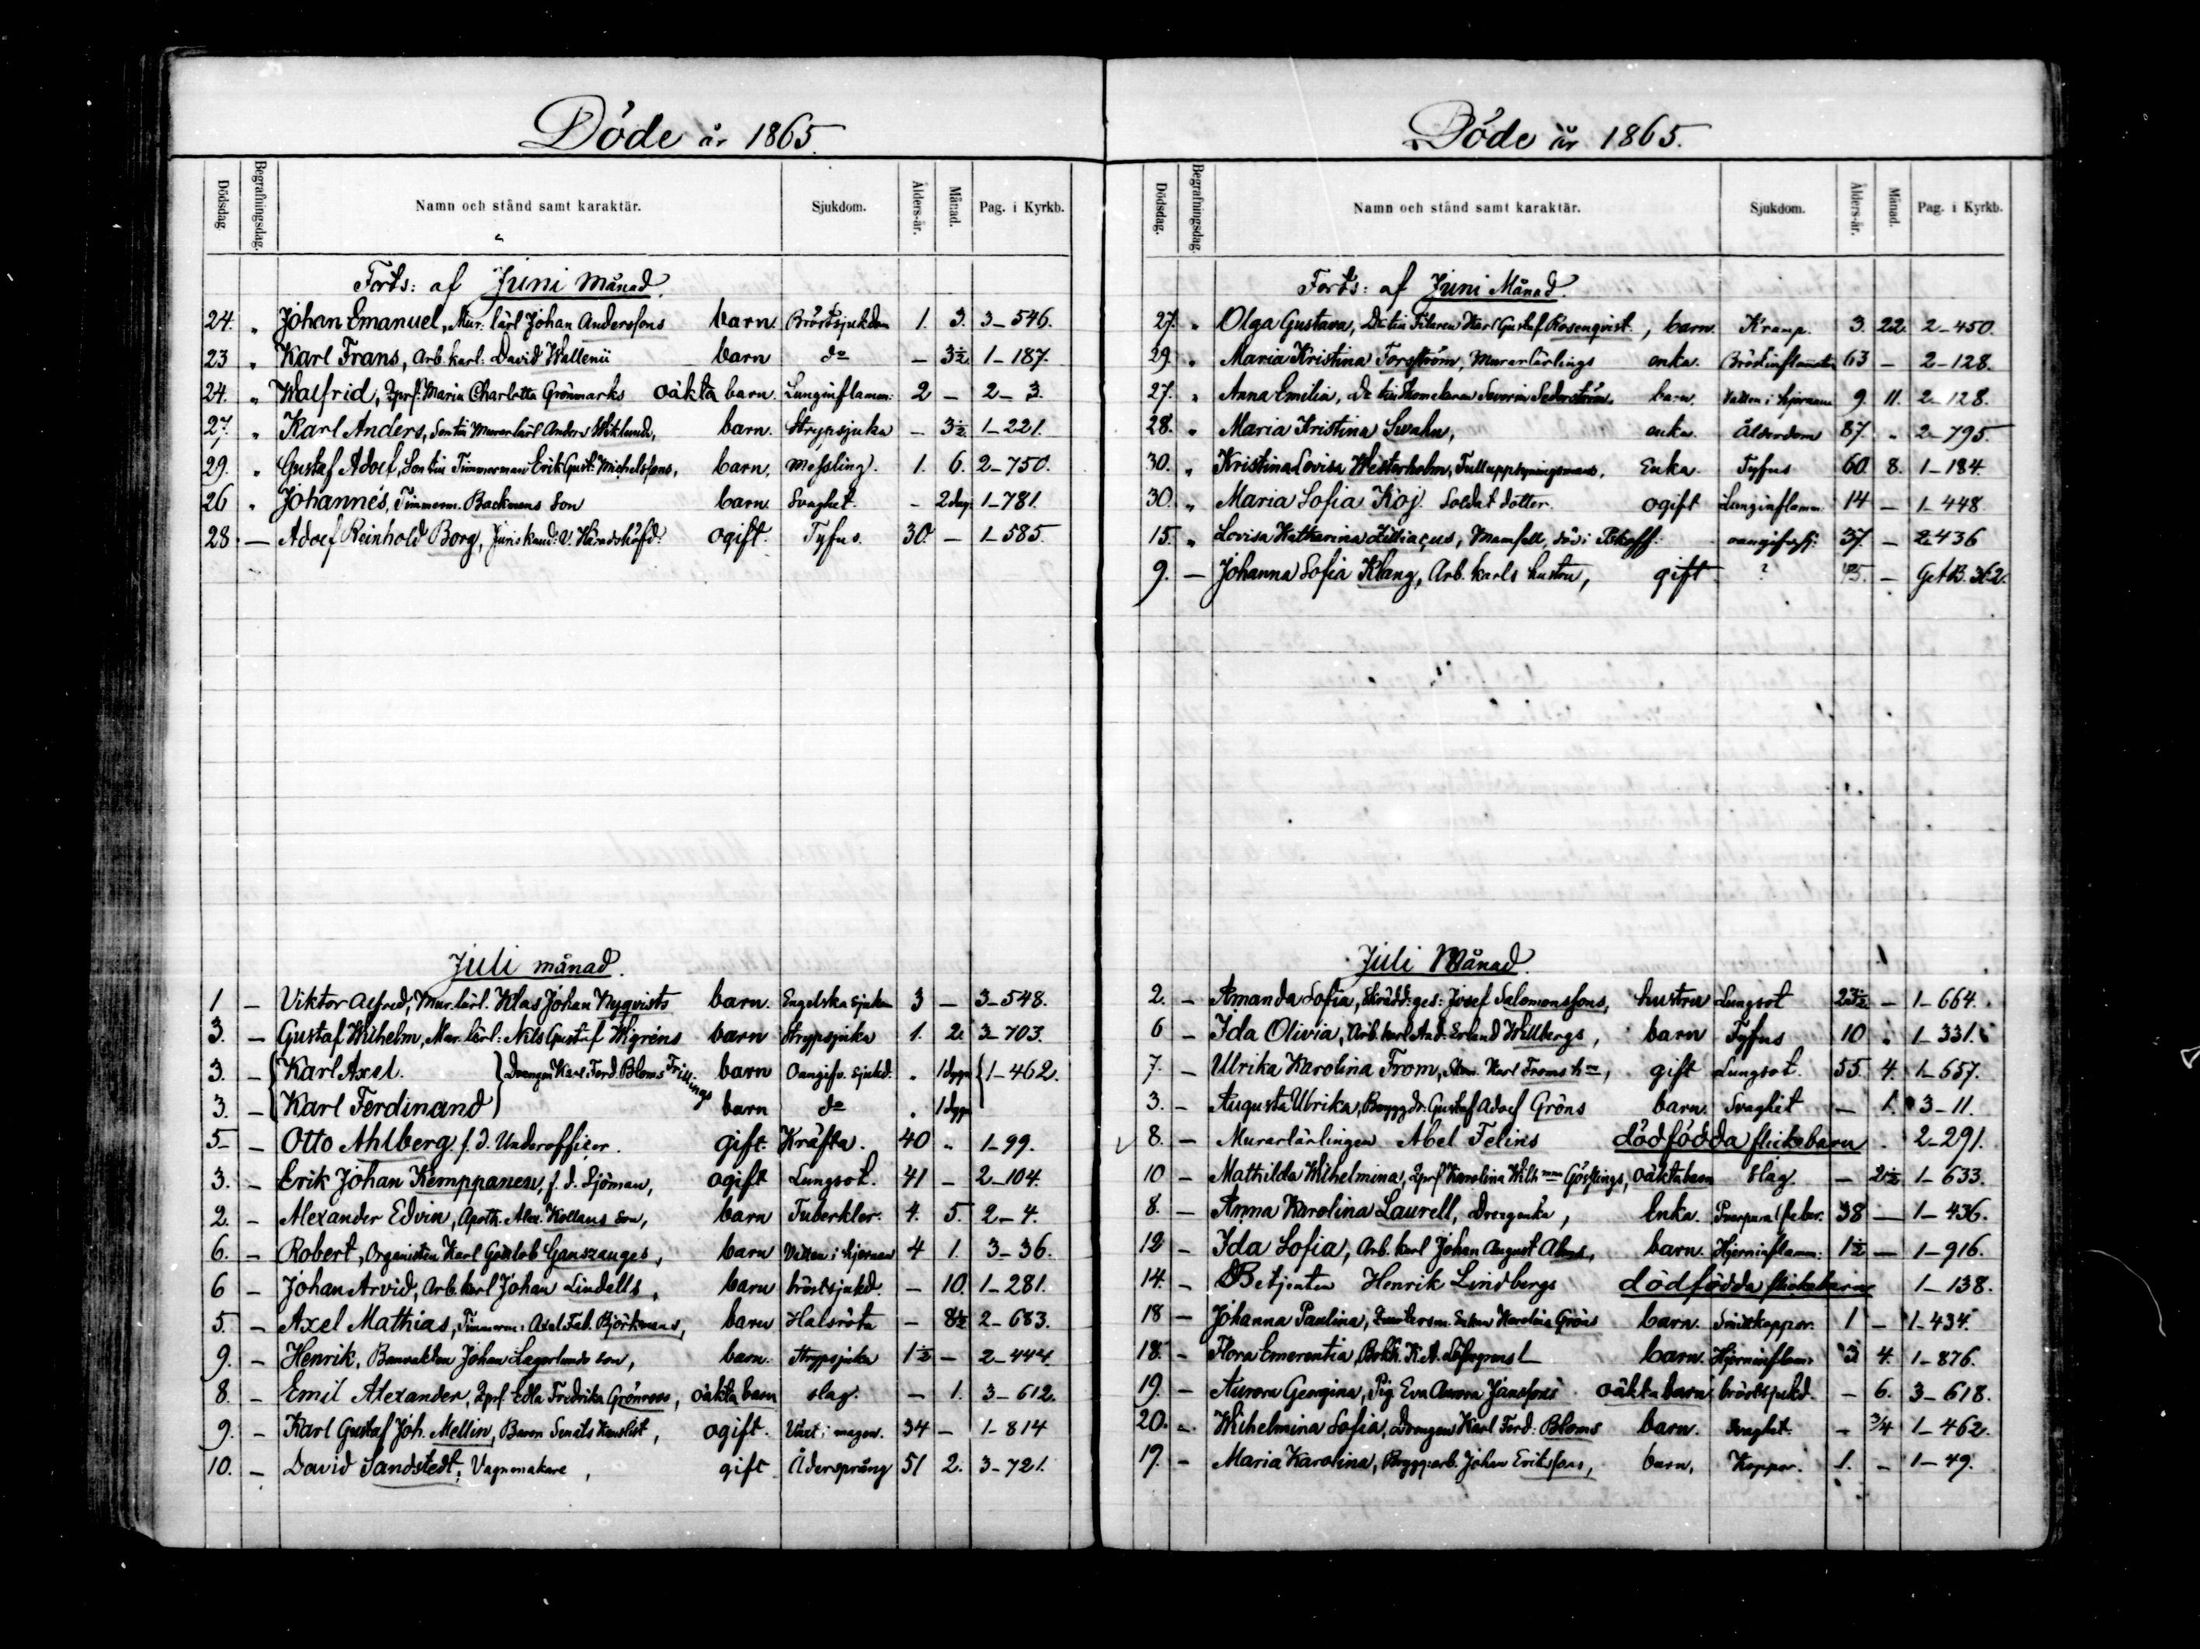 Döde år 1865.
Dödsdag Begrafningsdag. Namn och stånd samt karaktär. Sjukdom. Ålders-år. Månad. Pag. i Kyrkb.
Forts: af Juni Månad.
24. „ Johan Emanuel, Mur. lärl Johan Anderssons barn Bröstsjukdom 1. 3. 3-546.
23 „ Karl Frans, Arb. karl. David Wallenii barn do – 3½ 1-187.
24. „ Walfrid, Maria Charlotta Grönmarks oäkta barn. Lunginflamm: 2 – 2-3.
27. „ Karl Anders, Son till Murarelärl Anders Wiklunds, barn. Strypsjuka – 3½ 1-221.
29. „ Gustaf Adolf, Son till Timmerman Erik Gust. Michelssons, barn. Messling. 1. 6. 2-750.
26 „ Johannes, Timmerm. Backmans Son barn. Svaghet. - 2 dag. 1-781.
28. – Adolf Reinhold Borg, Juris kand: V. Häradshöfd: ogift. Tyfus. 30 – 1-585.
Juli månad.
1 – Viktor Alfred, Mur. lärl. Klas Johan Nyqvists barn. Engelska sjukan 3 – 3-548.
3. – Gustaf Wilhelm, Mur. lärl: Nils Gustaf Wigréns barn Strypsjuka 1. 2. 3-703.
3. – Karl Axel. Drengen Karl Ferd. Bloms Trillings barn Oangifv. sjukd. „ 1 dygn 1-462.
3. – Karl Ferdinand barn do „ 1 dygn
5 – Otto Ahlberg f. d. Underofficer. gift. Kräfta. 40 „ 1-99.
3. – Erik Johan Kemppanen, f. d. Sjöman, ogift Lungsot. 41 – 2-104.
2. – Alexander Edvin, Apoth. Alex. Kollans Son, barn Tuberkler. 4. 5. 2-4.
6. – Robert, Organisten Karl Gottlob Ganszauges, barn Vatten i hjernan 4 1. 3-36.
6 – Johan Arvid, Arb. karl Johan Lindells, barn bröstsjukd. – 10. 1-281.
5. – Axel Mathias, Timmerm: Axel Fab. Björkmans, barn Halsröta – 8½ 2-683.
9. – Henrik, Banvakten Johan Lagerlunds son, barn. Strypsjuka 1½ – 2-444.
8. – Emil Alexander, Edla Fredrika Grönroos, oäkta barn slag. – 1. 3-612.
9. – Karl Gustaf Joh. Mellin, Baron Senats Kanslist, ogift. Växt i magen. 34 – 1-814
10. – David Sandstedt, Vagnmakare, gift Ådersprång 51 2. 3-721.
Döde år 1865.
Dödsdag. Begrafningsdag Namn och stånd samt karaktär. Sjukdom. Ålders-år. Månad. Pag. i Kyrkb.
Forts: af Juni Månad.
27. „ Olga Gustava, Karl Gustaf Rosenqvist, barn. Kramp. 3. 22. 2-450.
29. „ Maria Kristina Forsström, Murarlärlings enka. Bröstinflammation 63 – 2-128.
27. „ Anna Emilia, Severin Sederström. barn. Vatten i hjernan 9. 11. 2-128.
28. „ Maria Kristina Swahn, enka. Ålderdom 87. „ 2-795.
30. „ Kristina Lovisa Westerholm, Tulluppsyningsmans, Enka. Tyfus 60. 8. 1-184.
30. „ Maria Sofia Koj. Soldat dotter. ogift Lunginflamm. 14 – 1-448.
15. „ Lovisa Katharina Zilliacus, Mamsell, död i Pskoff. 37. – 2-436
9. – Johanna Sofia Klang, Arb. karls hustru, gift ? 45. – Get B. 362.
Juli Månad.
2. – Amanda Sofia, Skrädd: ges: Josef Salomonssons, hustru Lungsot 23½ – 1-664.
6 – Ida Olivia, Arb. karl And. Erland Willbergs, barn Tyfus 10 „ 1-331.
7. – Ulrika Karolina From, Karl Froms h–, gift Lungsot. 55. 4. 1-657.
3. – Augusta Ulrika, Gustaf Adolf Gröns barn. Svaghet – 1. 3-11.
8. – Murarlärlingen Abel Felins dödfödda flickebarn. 2-291.
10 – Mathilda Wilhelmina, Karolina Wilh–mna oäkta barn Slag. – 2½ 1-633.
8. – Anna Karolina Laurell, Drengenka, Enka. Puerperal feber. 38 – 1-436.
12 – Ida Sofia, Arb. karl Johan August barn. Hjerninflamm: 1½ – 1-916.
14. – Betjenten Henrik Lindbergs dödfödda flickebarn 1-138.
18 – Johanna Paulina, Enkan Karolina Gröns barn. Smittkoppor. 1 – 1-434.
18. – Flora Emerentia, Bokh. K. A. Löfgrens barn. Hjerninflam: 3 4. 1-876.
19. – Aurora Georgina, Pig Eva Aurora Janssons oäkta barn bröstsjukd. – 6. 3-618.
20. – Wilhelmina Sofia, Drengen Karl Ferd: Bloms barn. Svaghet. – 3/4 1-462.
19. – Maria Karolina, Brygg: arb. Johan Erikssons, barn, Koppor. 1. – 1-49.